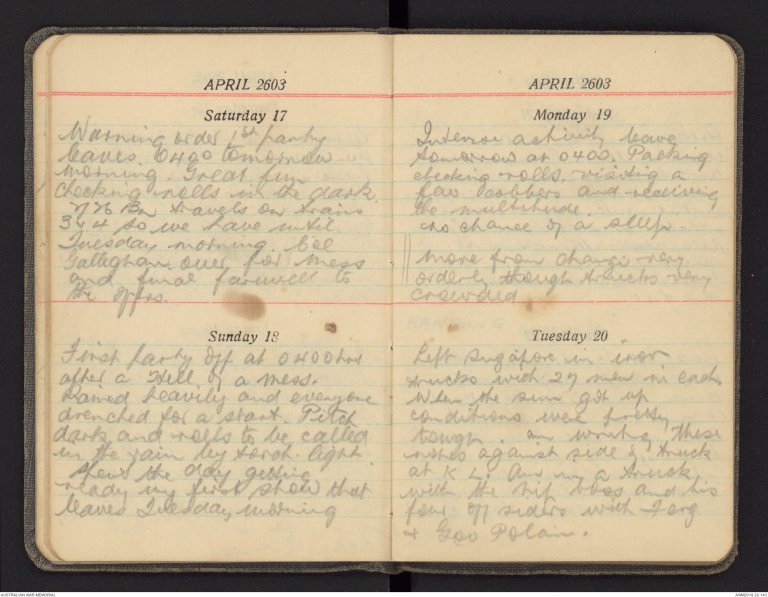 APRIL 2603
Saturday 17
Warning order 1st party
leaves 0400 tomorrow
morning. Great fun
checking rolls in the dark.
Bn travels on trains
3 & 4 so we have until
Tuesday morning. Col
Galleghan over for mess
and final farewell to
the offrs.
Sunday 18
First party off at 0400 hrs
after a Hell of a mess.
Rained heavily and everyone
drenched for a start. Pitch
dark and rolls to be called
in the rain by torch light.
Spent the day getting
ready my first show that
leaves Tuesday morning
APRIL 2603
Monday 19
Intense activity leave
tomorrow at 0400. Packing
checking rolls, visiting a
few cobbers and receiving
the multitude.
No chance of a sleep.
Move from Changi very
orderly though trucks very
crowded
Tuesday 20
Left Singapore in iron
trucks with 27 men in each.
When the sun got up
conditions were pretty
tough. am writing these
notes against side of truck
at K L. Am in a truck
with the nip boss and his
four off siders with Ferg
& Geo Polain.
AUSTRALIAN WAR MEMORIAL